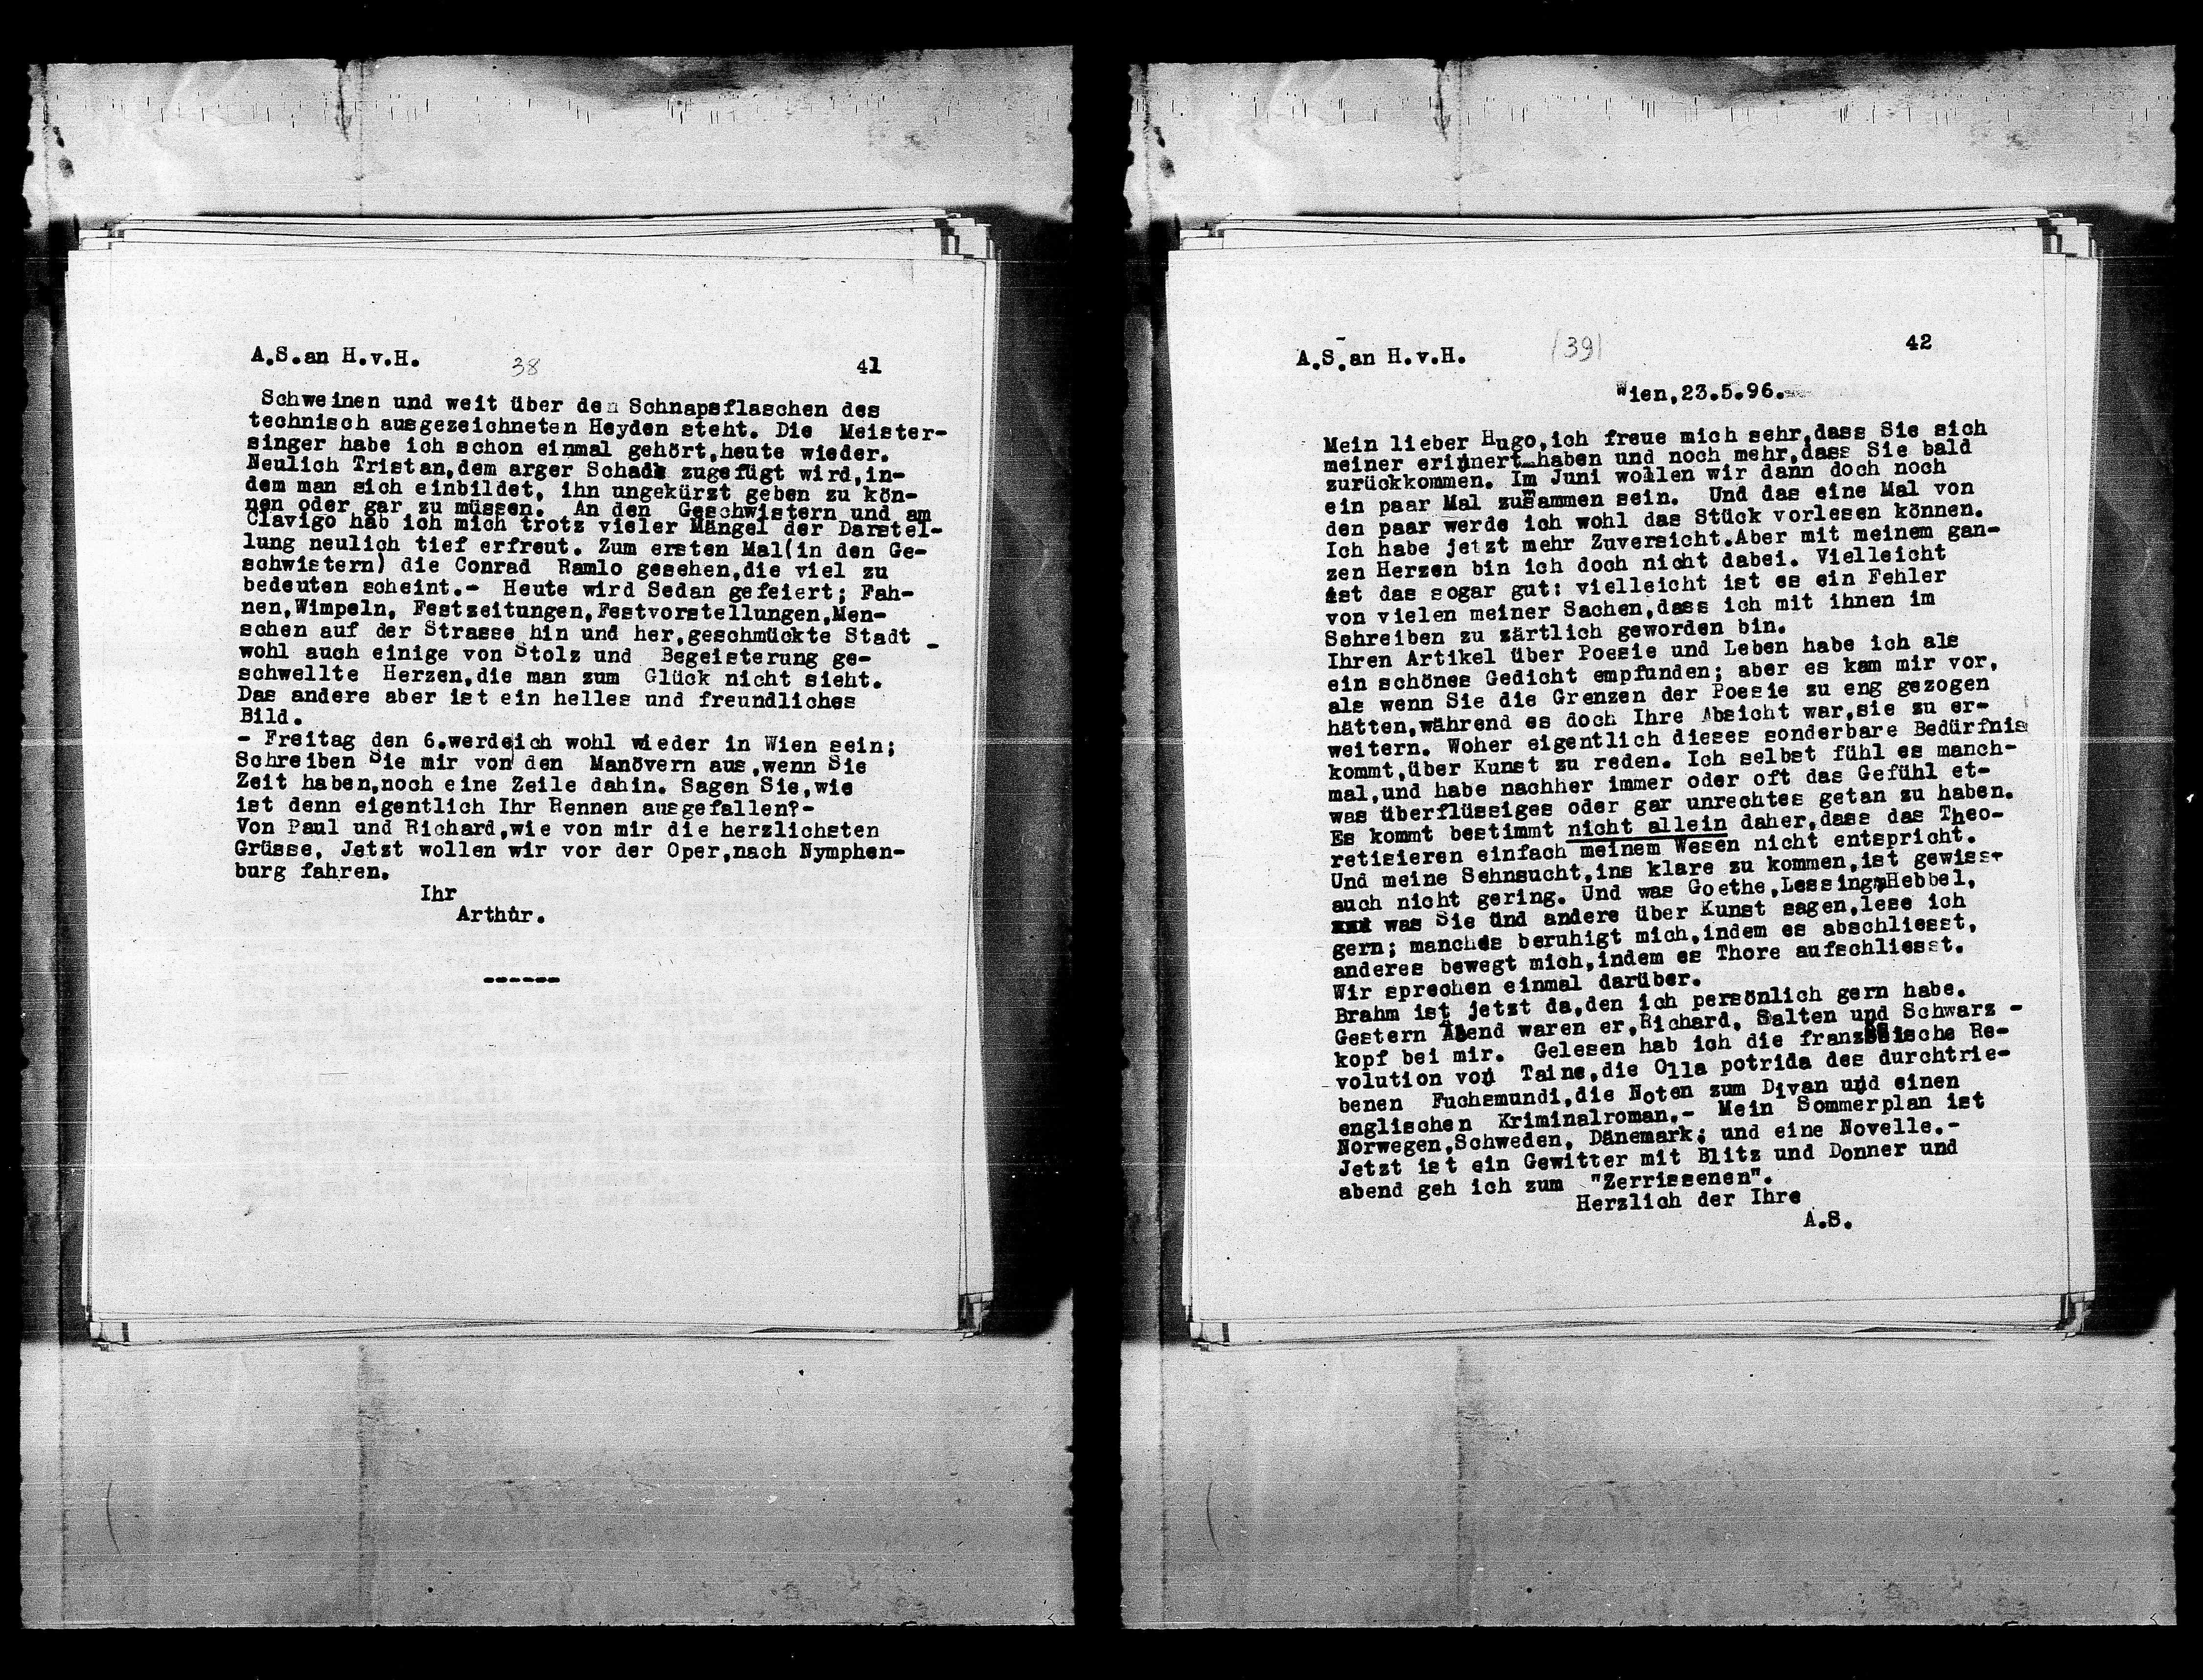 A.S.an H.v.H.
38
41
Schweinen und weit über den Schnapsflaschen des
technisch ausgezeichneten Heyden steht. Die Meister-
singer habe ich schon einmal gehört,heute wieder.
Neulich Tristan,dem arger Schade zugefügt wird,in-
dem man sich einbildet, ihn ungekürzt geben zu kön-
nen oder gar zu müssen. An den Geschwistern und am
Clavigo hab ich mich trotz vieler Mängel der Darstel-
lung neulich tief erfreut. Zum ersten Mal(in den Ge-
schwistern) die Conrad Ramlo gesehen,die viel zu
bedeuten scheint.- Heute wird Sedan gefeiert; Fah-
nen,Wimpeln, Festzeitungen,Festvorstellungen,Men-
schen auf der Strasse hin und her,geschmückte Stadt -
wohl auch einige von Stolz und Begeisterung ge-
schwellte Herzen,die man zum Glück nicht sieht.
Das andere aber ist ein helles und freundliches
Bild.
- Freitag den 6.werde ich wohl wieder in Wien sein;
Schreiben Sie mir von den Manövern aus,wenn Sie
Zeit haben,noch eine Zeile dahin. Sagen Sie,wie
ist denn eigentlich Ihr Rennen ausgefallen?-
Von Paul und Richard,wie von mir die herzlichsten
Grüsse, Jetzt wollen wir vor der Oper,nach Nymphen-
burg fahren.
Ihr
Arthur.
-------
A.S.an H.v.H.
(39)
42
Wien,23.5.96.
Mein lieber Hugo,ich freue mich sehr,dass Sie sich
meiner erinnert haben und noch mehr,dass Sie bald
zurückkommen. Im Juni wollen wir dann doch noch
ein paar Mal zusammen sein. Und das eine Mal von
den paar werde ich wohl das Stück vorlesen können.
Ich habe jetzt mehr Zuversicht.Aber mit meinem gan-
zen Herzen bin ich doch nicht dabei. Vielleicht
ist das sogar gut: vielleicht ist es ein Fehler
von vielen meiner Sachen,dass ich mit ihnen im
Schreiben zu zärtlich geworden bin.
Ihren Artikel über Poesie und Leben habe ich als
ein schönes Gedicht empfunden; aber es kam mir vor,
als wenn Sie die Grenzen der Poesie zu eng gezogen
hätten,während es doch Ihre Absicht war,sie zu er-
weitern. Woher eigentlich dieses sonderbare Bedürfnis
kommt,über Kunst zu reden. Ich selbst fühl es manch-
mal,und habe nachher immer oder oft das Gefühl et-
was überflüssiges oder gar unrechtes getan zu haben.
Es kommt bestimmt nicht allein daher,dass das Theo-
retisieren einfach meinem Wesen nicht entspricht.
Und meine Sehnsucht,ins klare zu kommen,ist gewiss
auch nicht gering. Und was Goethe,Lessing,Hebbel,
was Sie und andere über Kunst sagen,lese ich
gern; manches beruhigt mich,indem es abschliesst,
anderes bewegt mich,indem es Thore aufschliesst.
Wir sprechen einmal darüber.
Brahm ist jetzt da,den ich persönlich gern habe.
Gestern Abend waren er,Richard, Salten und Schwarz -
kopf bei mir. Gelesen hab ich die französische Re-
volution von Taine,die Olla potrida des durchtrie-
benen Fuchsmundi,die Noten zum Divan und einen
englischen Kriminalroman.- Mein Sommerplan ist
Norwegen,Schweden, Dänemark; und eine Novelle.-
Jetzt ist ein Gewitter mit Blitz und Donner und
abend geh ich zum "Zerrissenen".
Herzlich der Ihre
A.S.